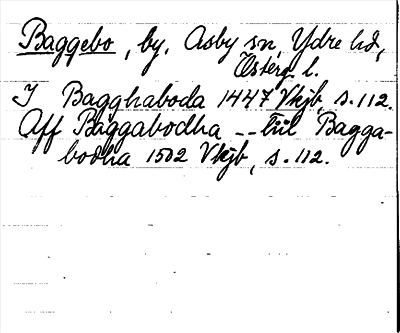 Baggebo, by, Asby sn, Ydre hd,
Österg. l.
I Bagghaboda 1447 Vkjb, s. 112.
Aff Baggabodha -- til Bagga-
bodha 1502 Vkjb, s. 112.